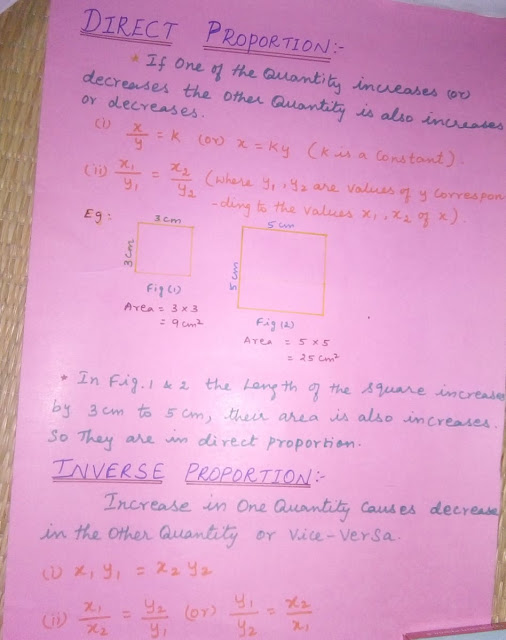 DIRECT PROPORTION:-
* If One of the Quantity increases (or)
decreases the Other Quantity is also increases
or decreases.
(i) x/y = K (or) x = Ky (K is a Constant).
(ii) x₁/y₁ = x₂/y₂ (where y₁, y₂ are values of y correspon
-ding to the values x₁, x₂ of x).
Eg:
3cm
3cm
Fig(1)
Area = 3 x 3
= 9 cm²
5cm
5cm
Fig(2)
Area = 5 x 5
= 25 cm²
* In Fig. 1 & 2 the Length of the square increases
by 3cm to 5cm, their area is also increases.
So They are in direct proportion.
INVERSE PROPORTION:-
Increase in One Quantity causes decrease
in the Other Quantity or Vice-Versa.
(i) x₁ y₁ = x₂ y₂
(ii) x₁/x₂ = y₂/y₁ (or) y₁/y₂ = x₂/x₁